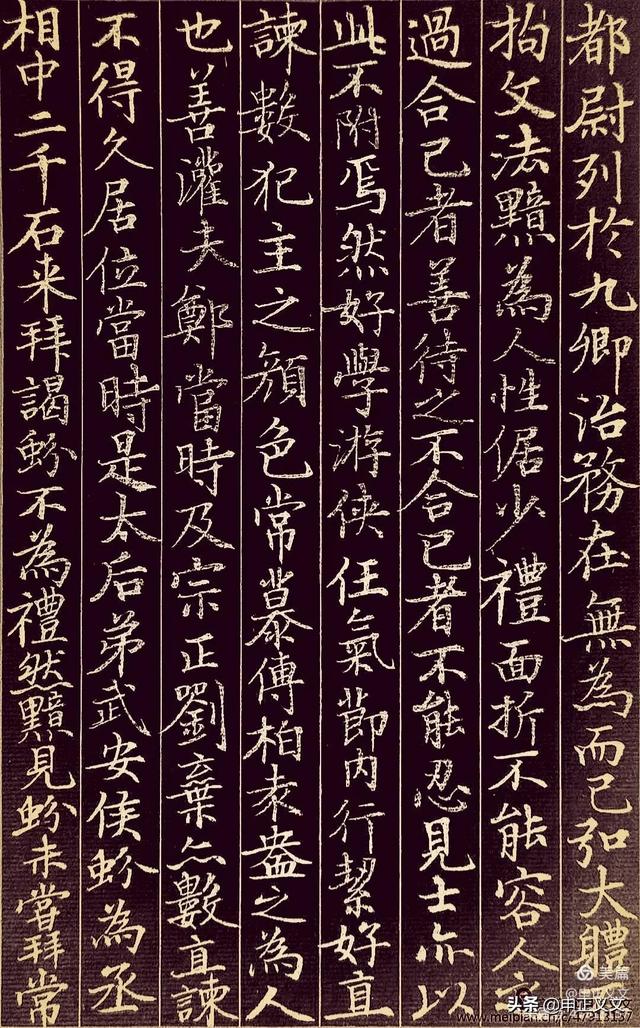 都尉列於九卿治務在無為而已弘大體
拘文法黯為人性倨少禮面折不能容人之
過合己者善待之不合己者不能忍見士亦以
此不附焉然好學游俠任氣節內行絜好直
諫數犯主之顏色常慕傅柏袁盎之為人
也善灌夫鄭當時及宗正劉棄亦數直諫
不得久居位當時是太后弟武安侯蚡為丞
相中二千石来拜謁蚡不為禮然黯見蚡未嘗拜常
美篇
头条 @申正义文
www.meipian.cn/c/47313137